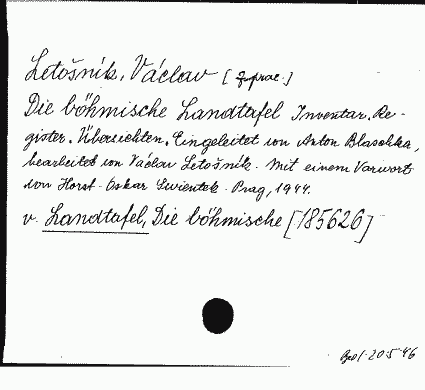 Letošník, Václav [zprac.]
Die böhmische Landtafel Inventar. Re-
gister. Übersichten. Eingeleitet von Anton Blaschka,
bearbeitet von Václav Letošník. Mit einem Vorwort
von Horst-Oskar Swientek. Prag, 1944.
v. Landtafel, Die böhmische [185626]
20·5·46